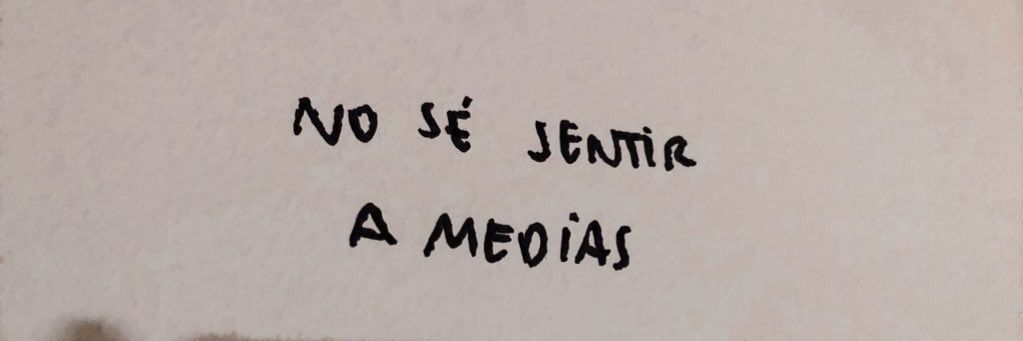 NO SÉ SENTIR
A MEDIAS